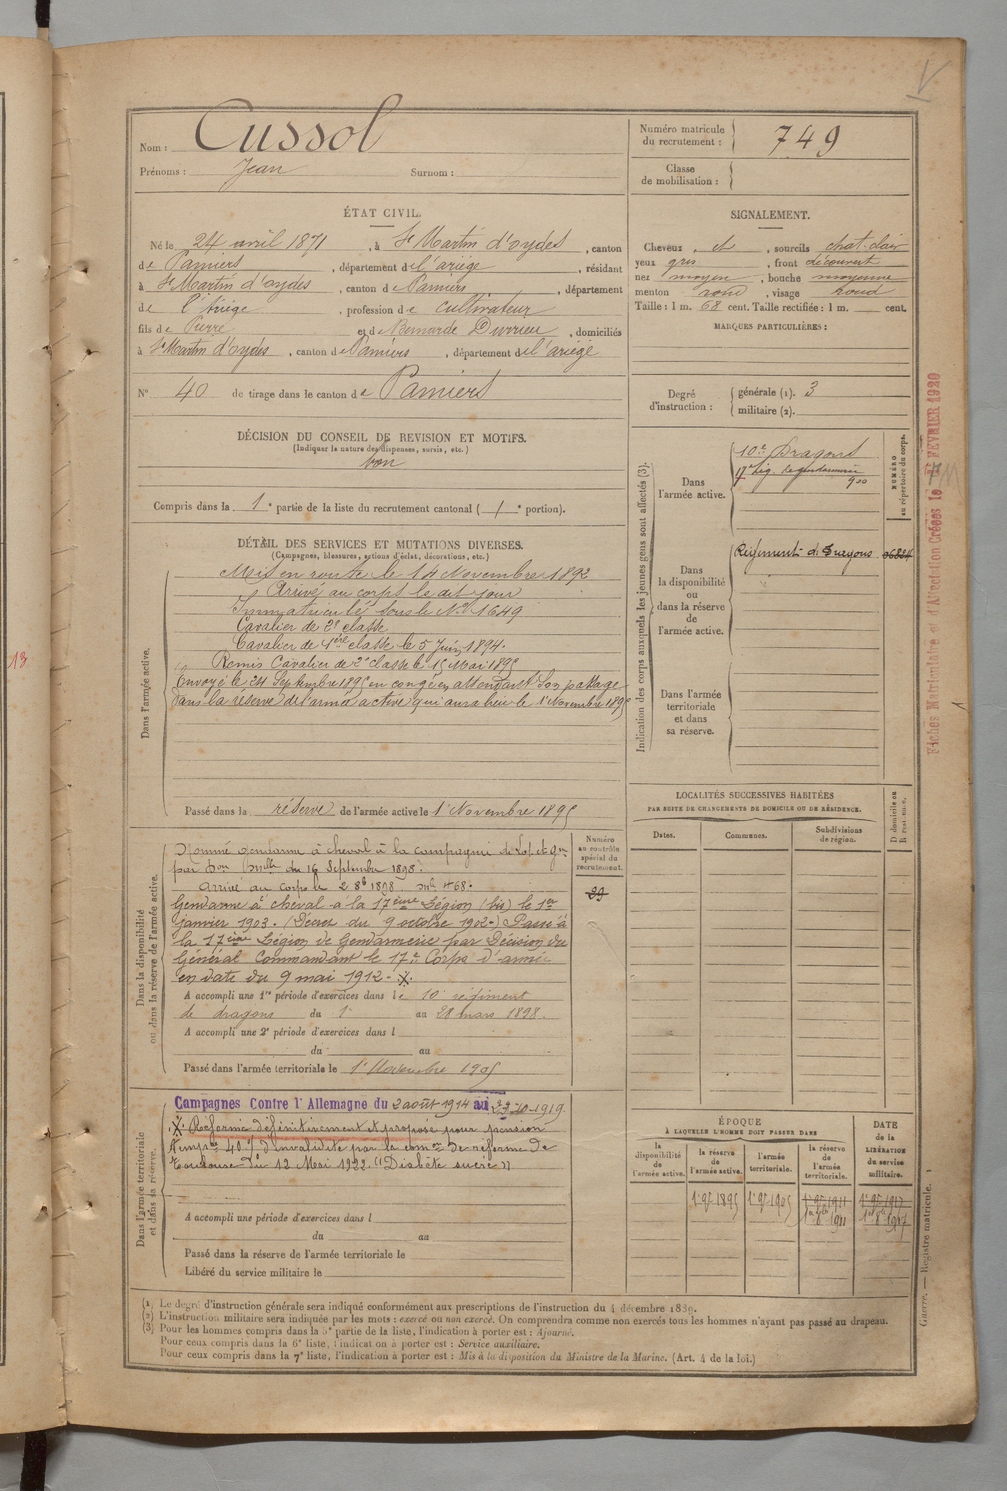 Nom : Cussol
Prénoms : Jean Surnom :
Numéro matricule du recrutement : 749
Classe de mobilisation :
ÉTAT CIVIL.
Né le 24 avril 1871, à St Martin d'oydes, canton
de Pamiers, département de l'ariège, résidant
à St Martin d'oydes, canton de Pamiers, département
de l'Ariège, profession de cultivateur
fils de Pierre et de Bernarde Durrieu, domiciliés
à St Martin d'oydes, canton de Pamiers, département de l'ariège
N° 40 de tirage dans le canton de Pamiers
SIGNALEMENT.
Cheveux et, sourcils chat-clair
yeux gris, front découvert
nez moyen, bouche moyenne
menton rond, visage rond
Taille : 1 m. 68 cent. Taille rectifiée : 1 m. cent.
MARQUES PARTICULIÈRES :
Degré d'instruction : générale (1). 3
militaire (2).
DÉCISION DU CONSEIL DE REVISION ET MOTIFS.
(Indiquer la nature des dispenses, sursis, etc.)
bon
Compris dans la 1e partie de la liste du recrutement cantonal ( 1e portion).
DÉTAIL DES SERVICES ET MUTATIONS DIVERSES.
(Campagnes, blessures, actions d'éclat, décorations, etc.)
Dans l'armée active.
Mis en route le 14 Novembre 1892
Arrivé au corps le dit jour
Immatriculé sous le No 1649
Cavalier de 2e classe
Cavalier de 1ère classe le 5 Juin 1894.
Remis Cavalier de 2e classe le 15 Mai 1895
Envoyé le 24 Septembre 1895 en congé en attendant son passage
dans la réserve de l'armée active qui aura lieu le 1er Novembre 1895
Passé dans la réserve de l'armée active le 1er Novembre 1895
Indication des corps auxquels les jeunes gens sont affectés (3).
NUMÉRO au répertoire du corps.
Dans l'armée active.
10e Dragons
17e Lég. de gendarmerie
900
Dans la disponibilité ou dans la réserve de l'armée active.
Régiment de Dragons
Dans l'armée territoriale et dans sa réserve.
Fiches Matriculaire et d'Affectation Créées le FÉVRIER 1920
LOCALITÉS SUCCESSIVES HABITÉES
PAR SUITE DE CHANGEMENTS DE DOMICILE OU DE RÉSIDENCE.
Dates. Communes. Subdivisions de région. D domicile ou R résidence.
Dans la disponibilité ou dans la réserve de l'armée active.
Numéro au contrôle spécial du recrutement.
29
Nommé gendarme à cheval à la compagnie de Lot et Gne
par Don Mlle du 16 Septembre 1898.
Arrivé au corps le 2 8bre 1898 Mle 468.
Gendarme à cheval à la 17ème Légion (bis) le 1er
janvier 1903. (Décret du 9 octobre 1902.) Passé à
la 17ème Légion de Gendarmerie par Décision du
Général Commandant le 17e Corps d'armée
en date du 9 mai 1912. X.
A accompli une 1re période d'exercices dans le 10e régiment
de dragons du 1er au 28 mars 1898.
A accompli une 2e période d'exercices dans l
du au
Passé dans l'armée territoriale le 1er Novembre 1905
Dans l'armée territoriale et dans sa réserve.
Campagnes Contre l'Allemagne du 2 août 1914 au 23-10-1919.
X. Réformé définitivement et proposé pour pension
tempre 40% d'invalidité par la comon de réforme de
Toulouse du 12 Mai 1922. "(Diabète sucré)"
A accompli une période d'exercices dans l
du au
Passé dans la réserve de l'armée territoriale le
Libéré du service militaire le
ÉPOQUE
À LAQUELLE L'HOMME DOIT PASSER DANS
DATE de la LIBÉRATION du service militaire.
la disponibilité de l'armée active. la réserve de l'armée active. l'armée territoriale. la réserve de l'armée territoriale.
1er 9bre 1895 1er 9bre 1905 1er 9bre 1911 1er 9bre 1917
1er 8bre 1911 1er 8bre 1917
(1) Le degré d'instruction générale sera indiqué conformément aux prescriptions de l'instruction du 4 décembre 1889.
(2) L'instruction militaire sera indiquée par les mots : exercé ou non exercé. On comprendra comme non exercés tous les hommes n'ayant pas passé au drapeau.
(3) Pour les hommes compris dans la 5e partie de la liste, l'indication à porter est : Ajourné.
Pour ceux compris dans la 6e liste, l'indication à porter est : Service auxiliaire.
Pour ceux compris dans la 7e liste, l'indication à porter est : Mis à la disposition du Ministre de la Marine. (Art. 4 de la loi.)
Guerre. — Registre matricule.
13